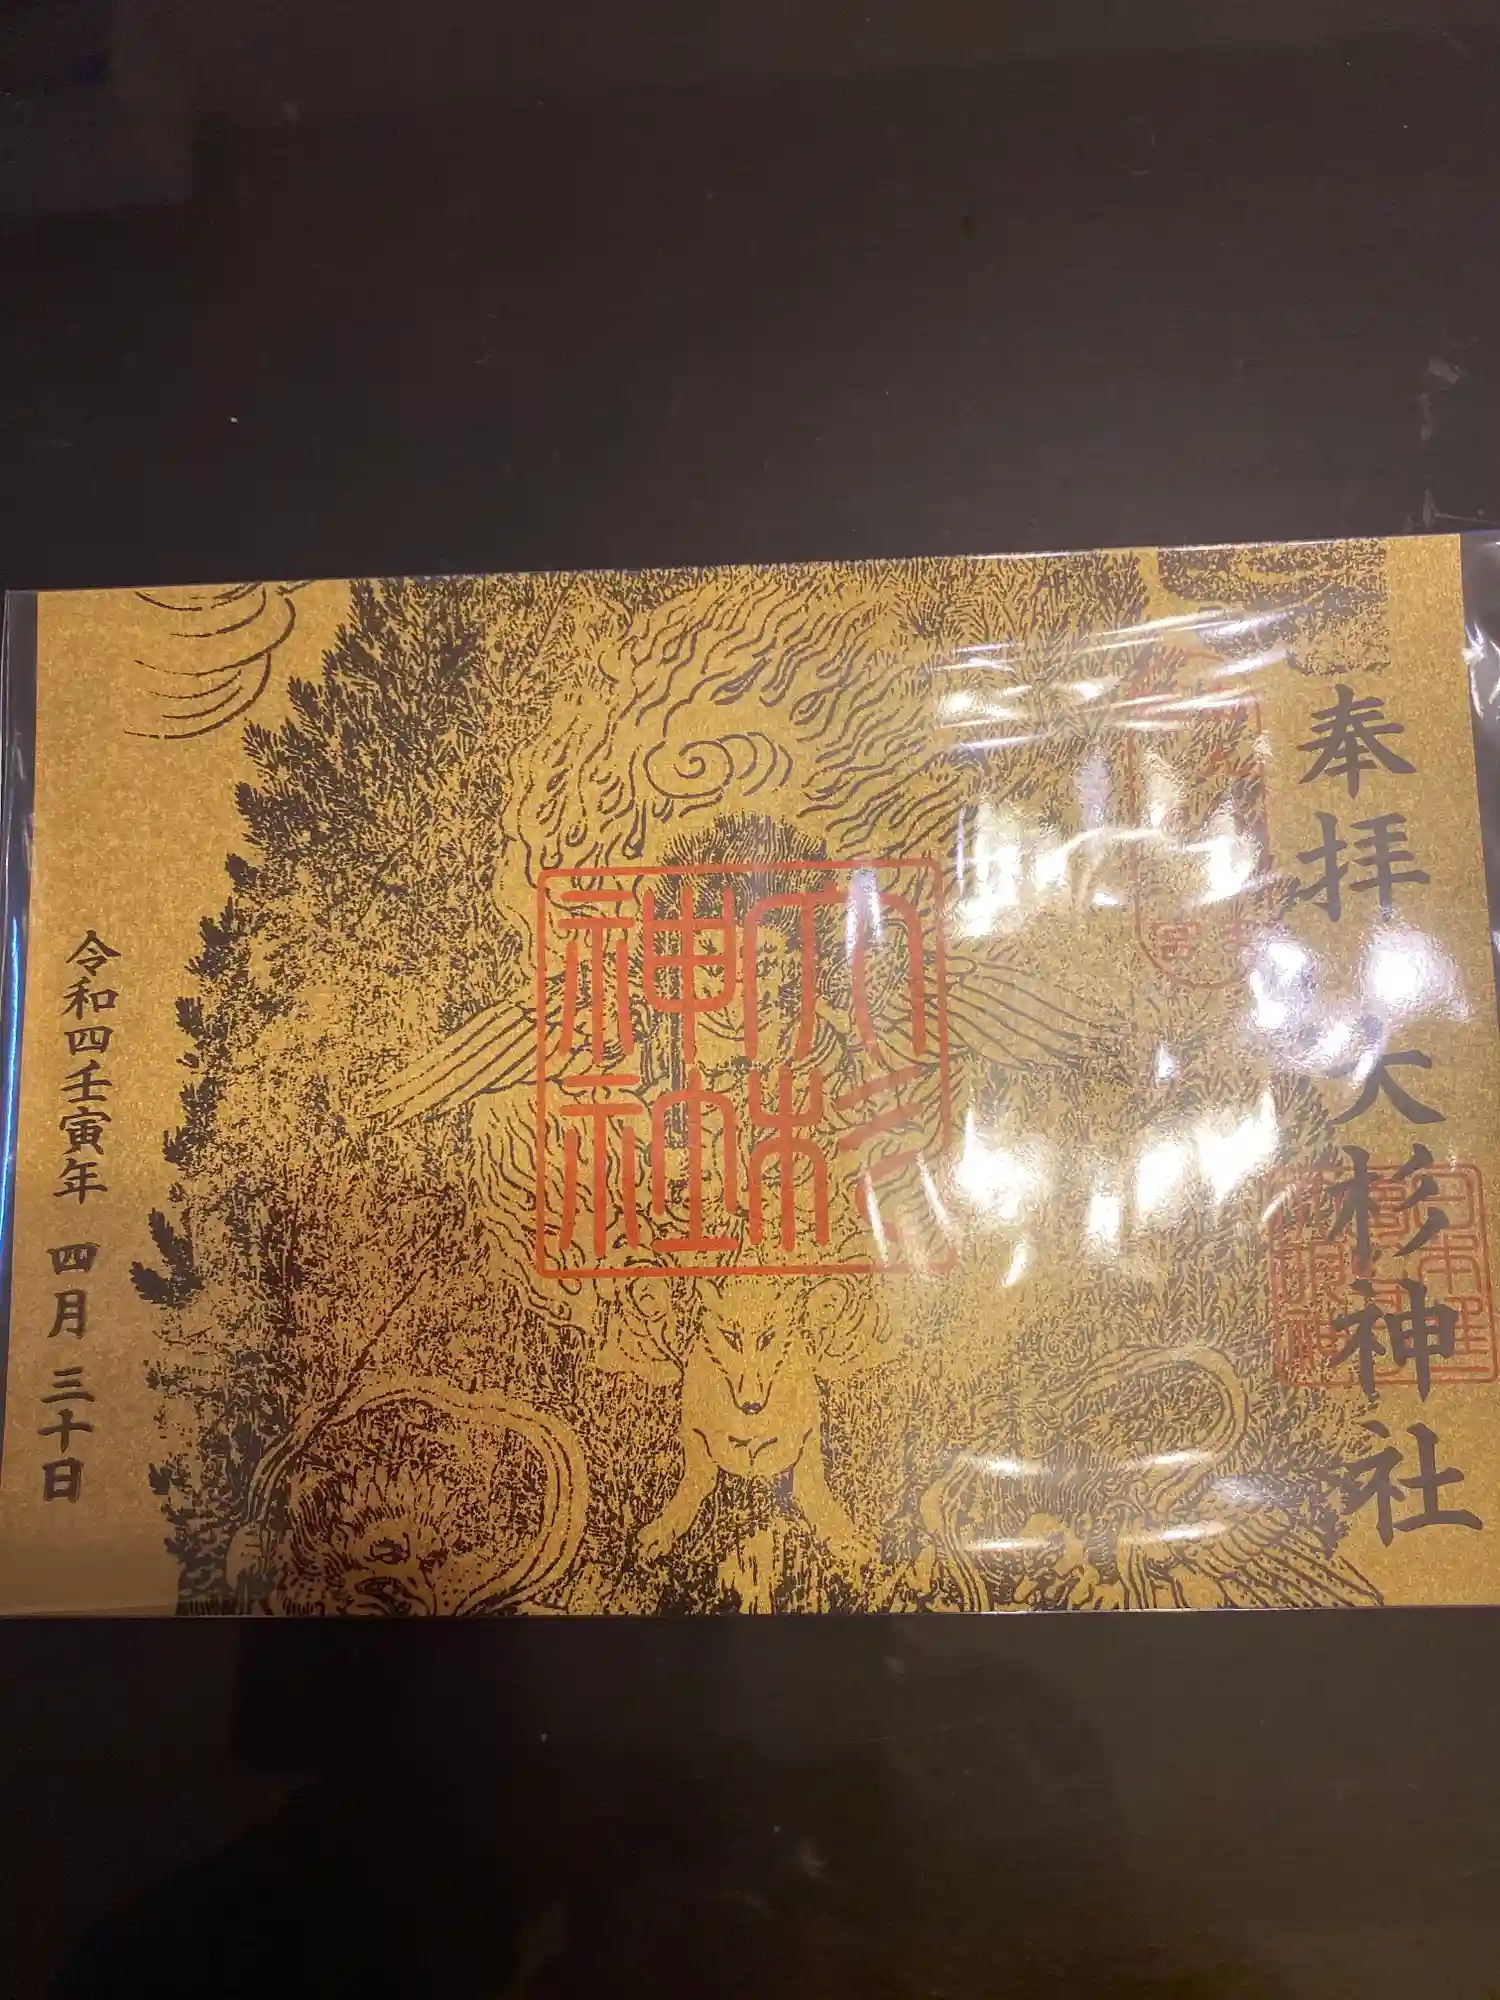 奉拝 大杉神社
大杉
神社
令和四壬寅年 四月 三十日